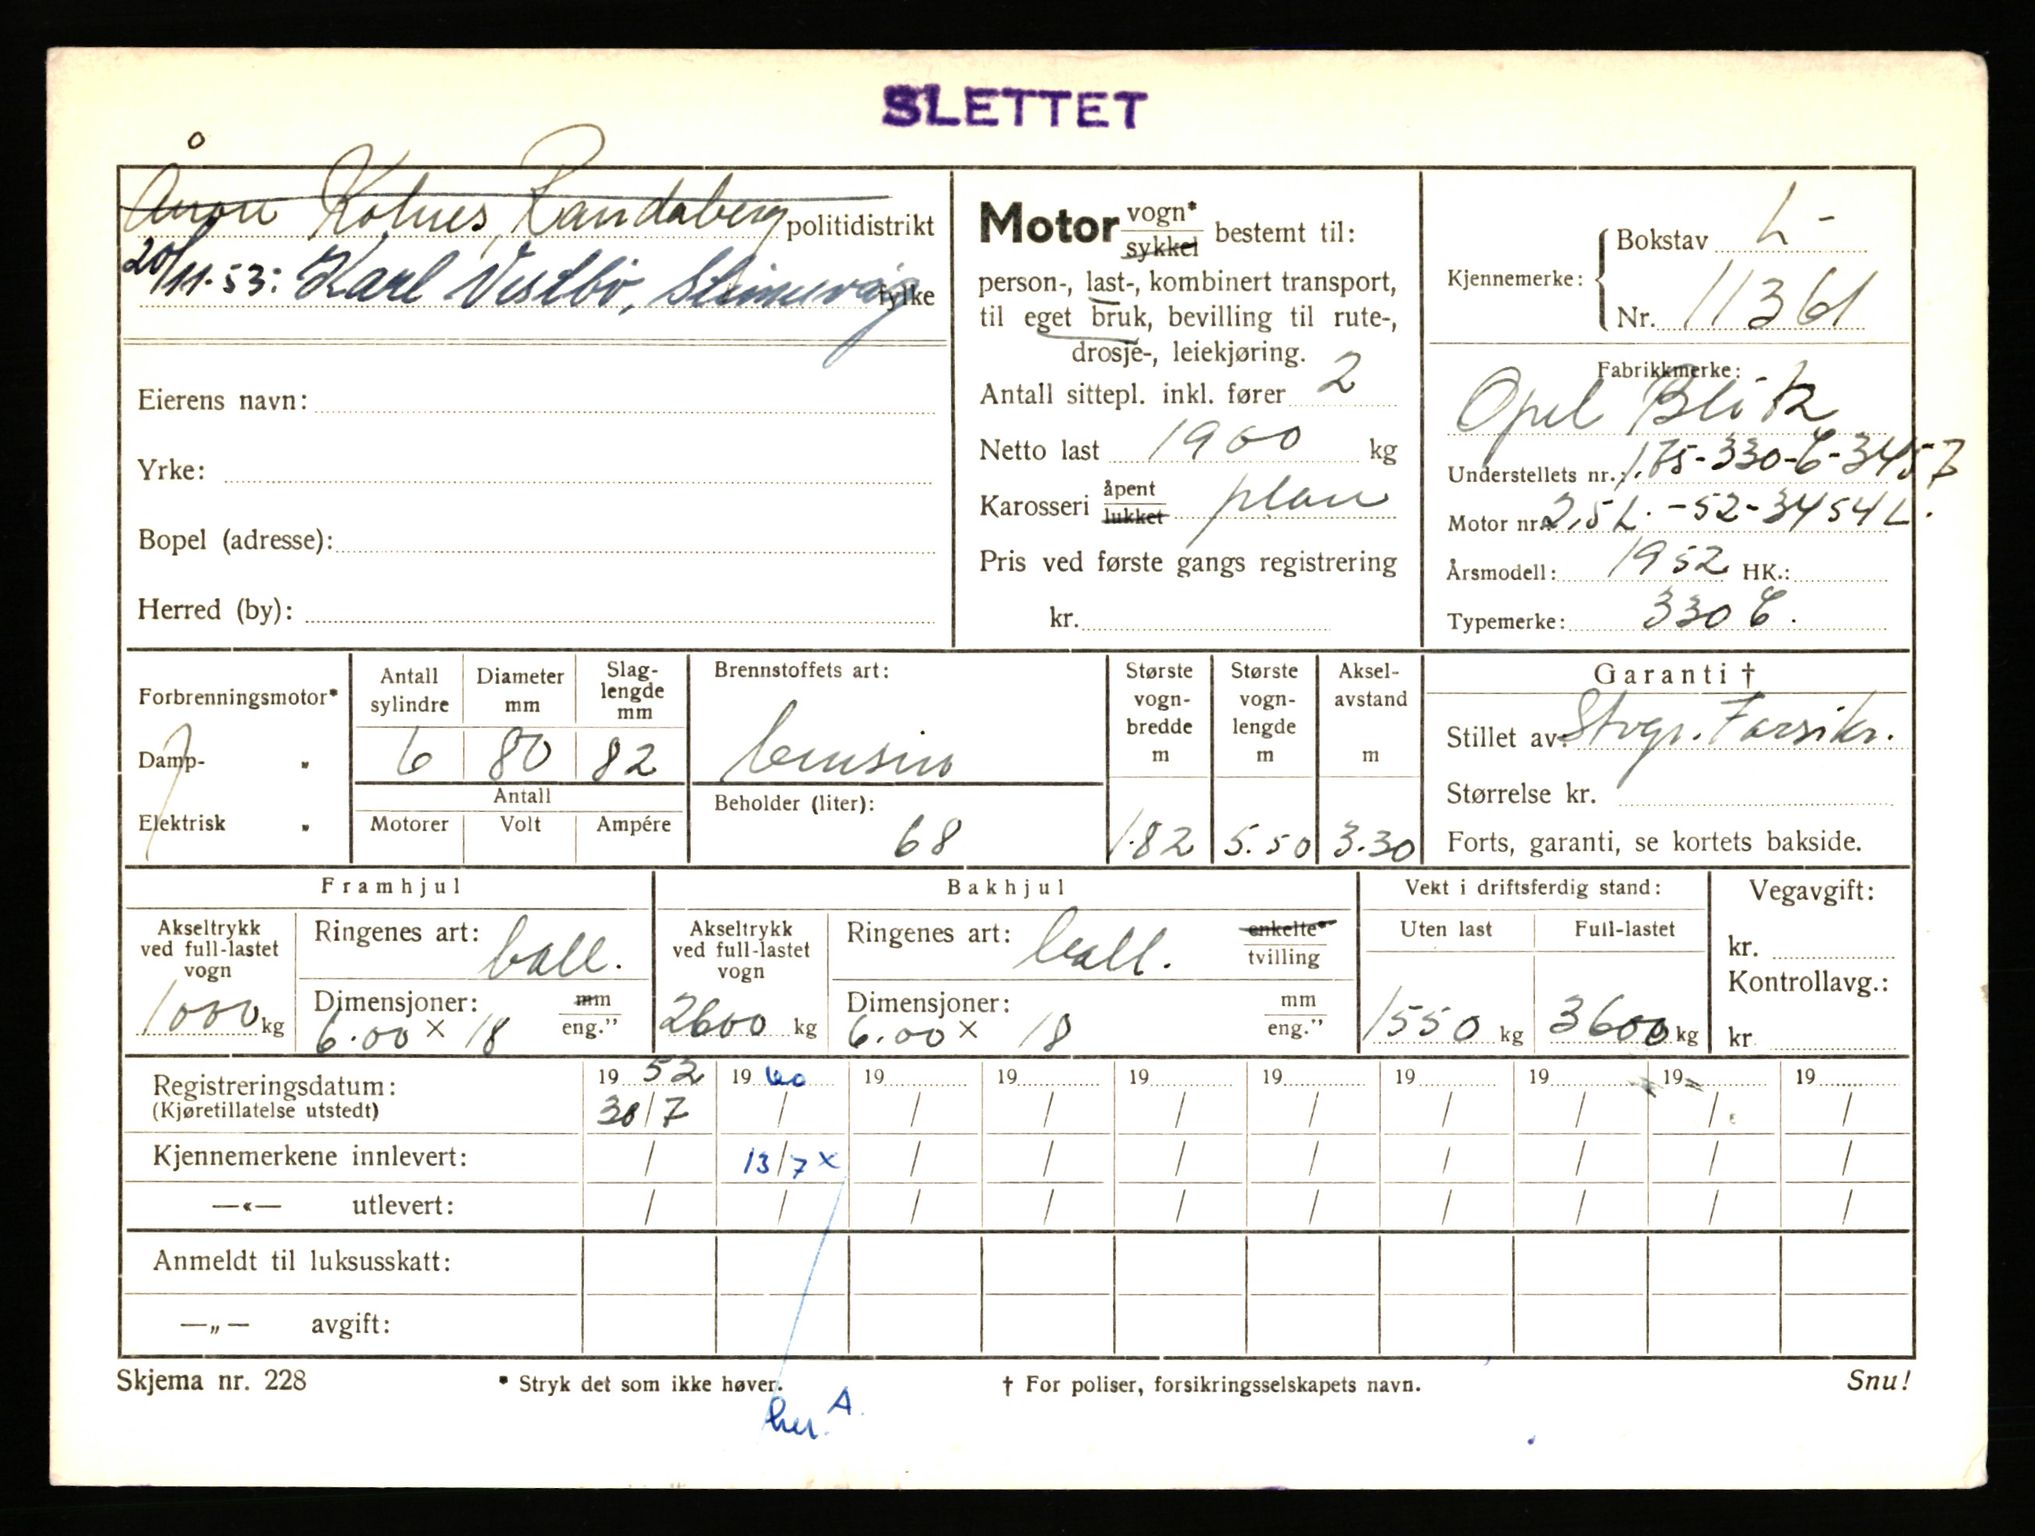 SLETTET
Åron Kolnes, Randaberg politidistrikt
20/11-53: Karl Vestbø, fylke
Eierens navn:
Yrke:
Bopel (adresse):
Herred (by):
Motor vogn* / sykkel bestemt til:
person-, last-, kombinert transport,
til eget bruk, bevilling til rute-,
drosje-, leiekjøring.
Antall sittepl. inkl. fører 2
Netto last 1900 kg
Karosseri åpent / lukket plan
Pris ved første gangs registrering
kr.
Kjennemerke: Bokstav L-
Nr. 11361
Fabrikkmerke:
Opel Blitz
Understellets nr.: 1.75-330-C-3457
Motor nr. 2,5L.-52-3454L.
Årsmodell: 1952 HK.:
Typemerke: 330 C.
Forbrenningsmotor*
Damp- „
Elektrisk „
Antall sylindre 6
Diameter mm 80
Slag-lengde mm 82
Antall
Motorer Volt Ampére
Brennstoffets art:
bensin
Beholder (liter):
68
Største vogn-bredde m 1.82
Største vogn-lengde m 5.50
Aksel-avstand m 3.30
Garanti †
Stillet av: Stvgr. Forsikr.
Størrelse kr.
Forts, garanti, se kortets bakside.
Framhjul
Akseltrykk ved full-lastet vogn
1000 kg
Ringenes art: ball.
Dimensjoner: mm / eng."
6.00 x 18
Bakhjul
Akseltrykk ved full-lastet vogn
2600 kg
Ringenes art: ball. enkelte* / tvilling
Dimensjoner: mm / eng."
6.00 x 18
Vekt i driftsferdig stand:
Uten last Full-lastet
1550 kg 3600 kg
Vegavgift:
kr.
Kontrollavg.:
kr.
Registreringsdatum: 19 52 19 60 19 19 19 19 19 19 19 19
(Kjøretillatelse utstedt) 30/7 / / / / / / / / /
Kjennemerkene innlevert: / 13/7 x / / / / / / / /
—«— utlevert: / / / / / / / / / /
Anmeldt til luksusskatt:
—„— avgift:
Skjema nr. 228 * Stryk det som ikke høver. † For poliser, forsikringsselskapets navn. Snu!
her. A.